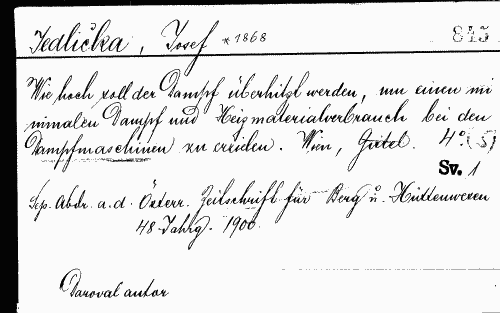 Jedlička, Josef *1868 845
Wie hoch soll der Dampf überhitzt werden, um einen mi
nimalen Dampf und Heizmaterialverbrauch bei den
Dampfmaschinen zu erzielen. Wien, 4° (5)
Sv. 1
Sep. Abdr. a. d. Österr. Zeitschrift für Berg u. Hüttenwesen
48 Jahrg. 1900.
Daroval autor